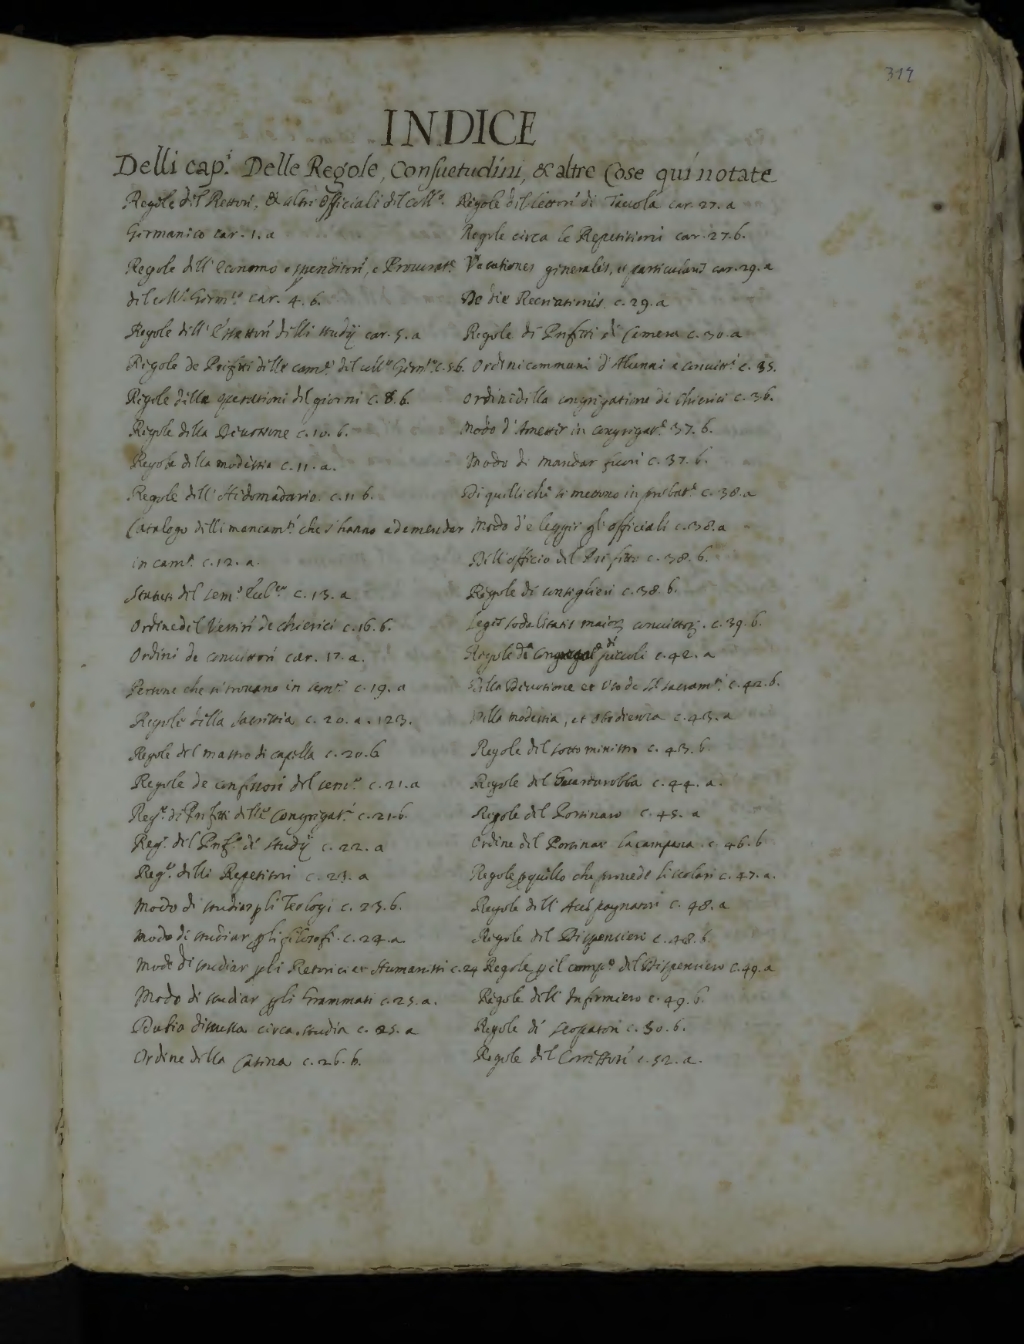 319
INDICE
Delli cap.i Delle Regole, Consuetudini, & altre Cose qui notate
Regole del Rettori, & altri Officiali del Coll.o
Germanico car. 1. a
Regole dell' Economo e spenditori, e Procurat.re
del Coll.o Germ.co car. 4. b.
Regole dell' delli studij car. 5. a
Regole de Prefetti delle cam.e del coll.o Germ.co c. 5 b.
Regole delle operationi del giorni c. 8. b.
Regole della Devotione c. 10. b.
Regole della modestia c. 11. a.
Regole dell' Hedomadario c. 11 b.
Catalogo delli mancam.ti che s'hanno ad emendar
in cam.a c. 12. a.
Statuti del sem.o c. 13. a
Ordine del Vestiri de chierici c. 16. b.
Ordini de convittori car. 17. a.
Persone che si trovano in sem.o c. 19. a
Regole della sacristia c. 20. a. 123.
Regole del mastro di capella c. 20. b
Regole de confessori del sem.o c. 21. a
Reg.e de Prefetti delle Congregat.i c. 21. b.
Reg.e del Pref.o de studij c. 22. a
Reg.e delli Repetitori c. 23. a
Modo di studiar p li Teologi c. 23. b.
Modo di studiar p li filosofi c. 24. a
Modo di studiar p li Retorici et Humanisti c. 24
Modo di studiar p li Grammati c. 25. a.
circa studia c. 25. a
Ordine della c. 26. b.
Regole del lettori di Tavola car. 27. a
Regole circa le Repetitioni car. 27. b.
Vacationes generales, et particulares car. 29. a
De die Recreationis c. 29. a
Regole di Prefetti di Camera c. 30. a
Ordini communi d'Alunni e convitt.i c. 35.
Ordini della congregatione de chierici c. 36.
Modo d'Ametter in congregat.e 37. b.
Modo di mandar fuori c. 37. b.
Di quelli che si mettono in probat.e c. 38. a
Modo d'eleggir gl'officiali c. 38. a
Dell'officio del Prefetto c. 38. b.
Regole di consiglieri c. 38. b.
Leges sodalitatis maior convictor. c. 39. b.
Regole piccoli c. 42. a
Della Devotione et uso de SS. sacram.ti c. 42. b.
Della modestia, et obedienza c. 43. a
Regole del sotto ministro c. 43. b
Regole del Guardarobba c. 44. a.
Regole del Portinaro c. 45. a
Ordine del Portinar la campana c. 46. b
Regole p quello che provede li scolari c. 47. a.
Regole dell' c. 48. a
Regole del Dispensieri c. 48. b
Regole p il comp.o del Dispensiero c. 49. a
Regole dell' Infirmiero c. 49. b.
Regole di scopatori c. 50. b.
Regole del Correttori c. 52. a.